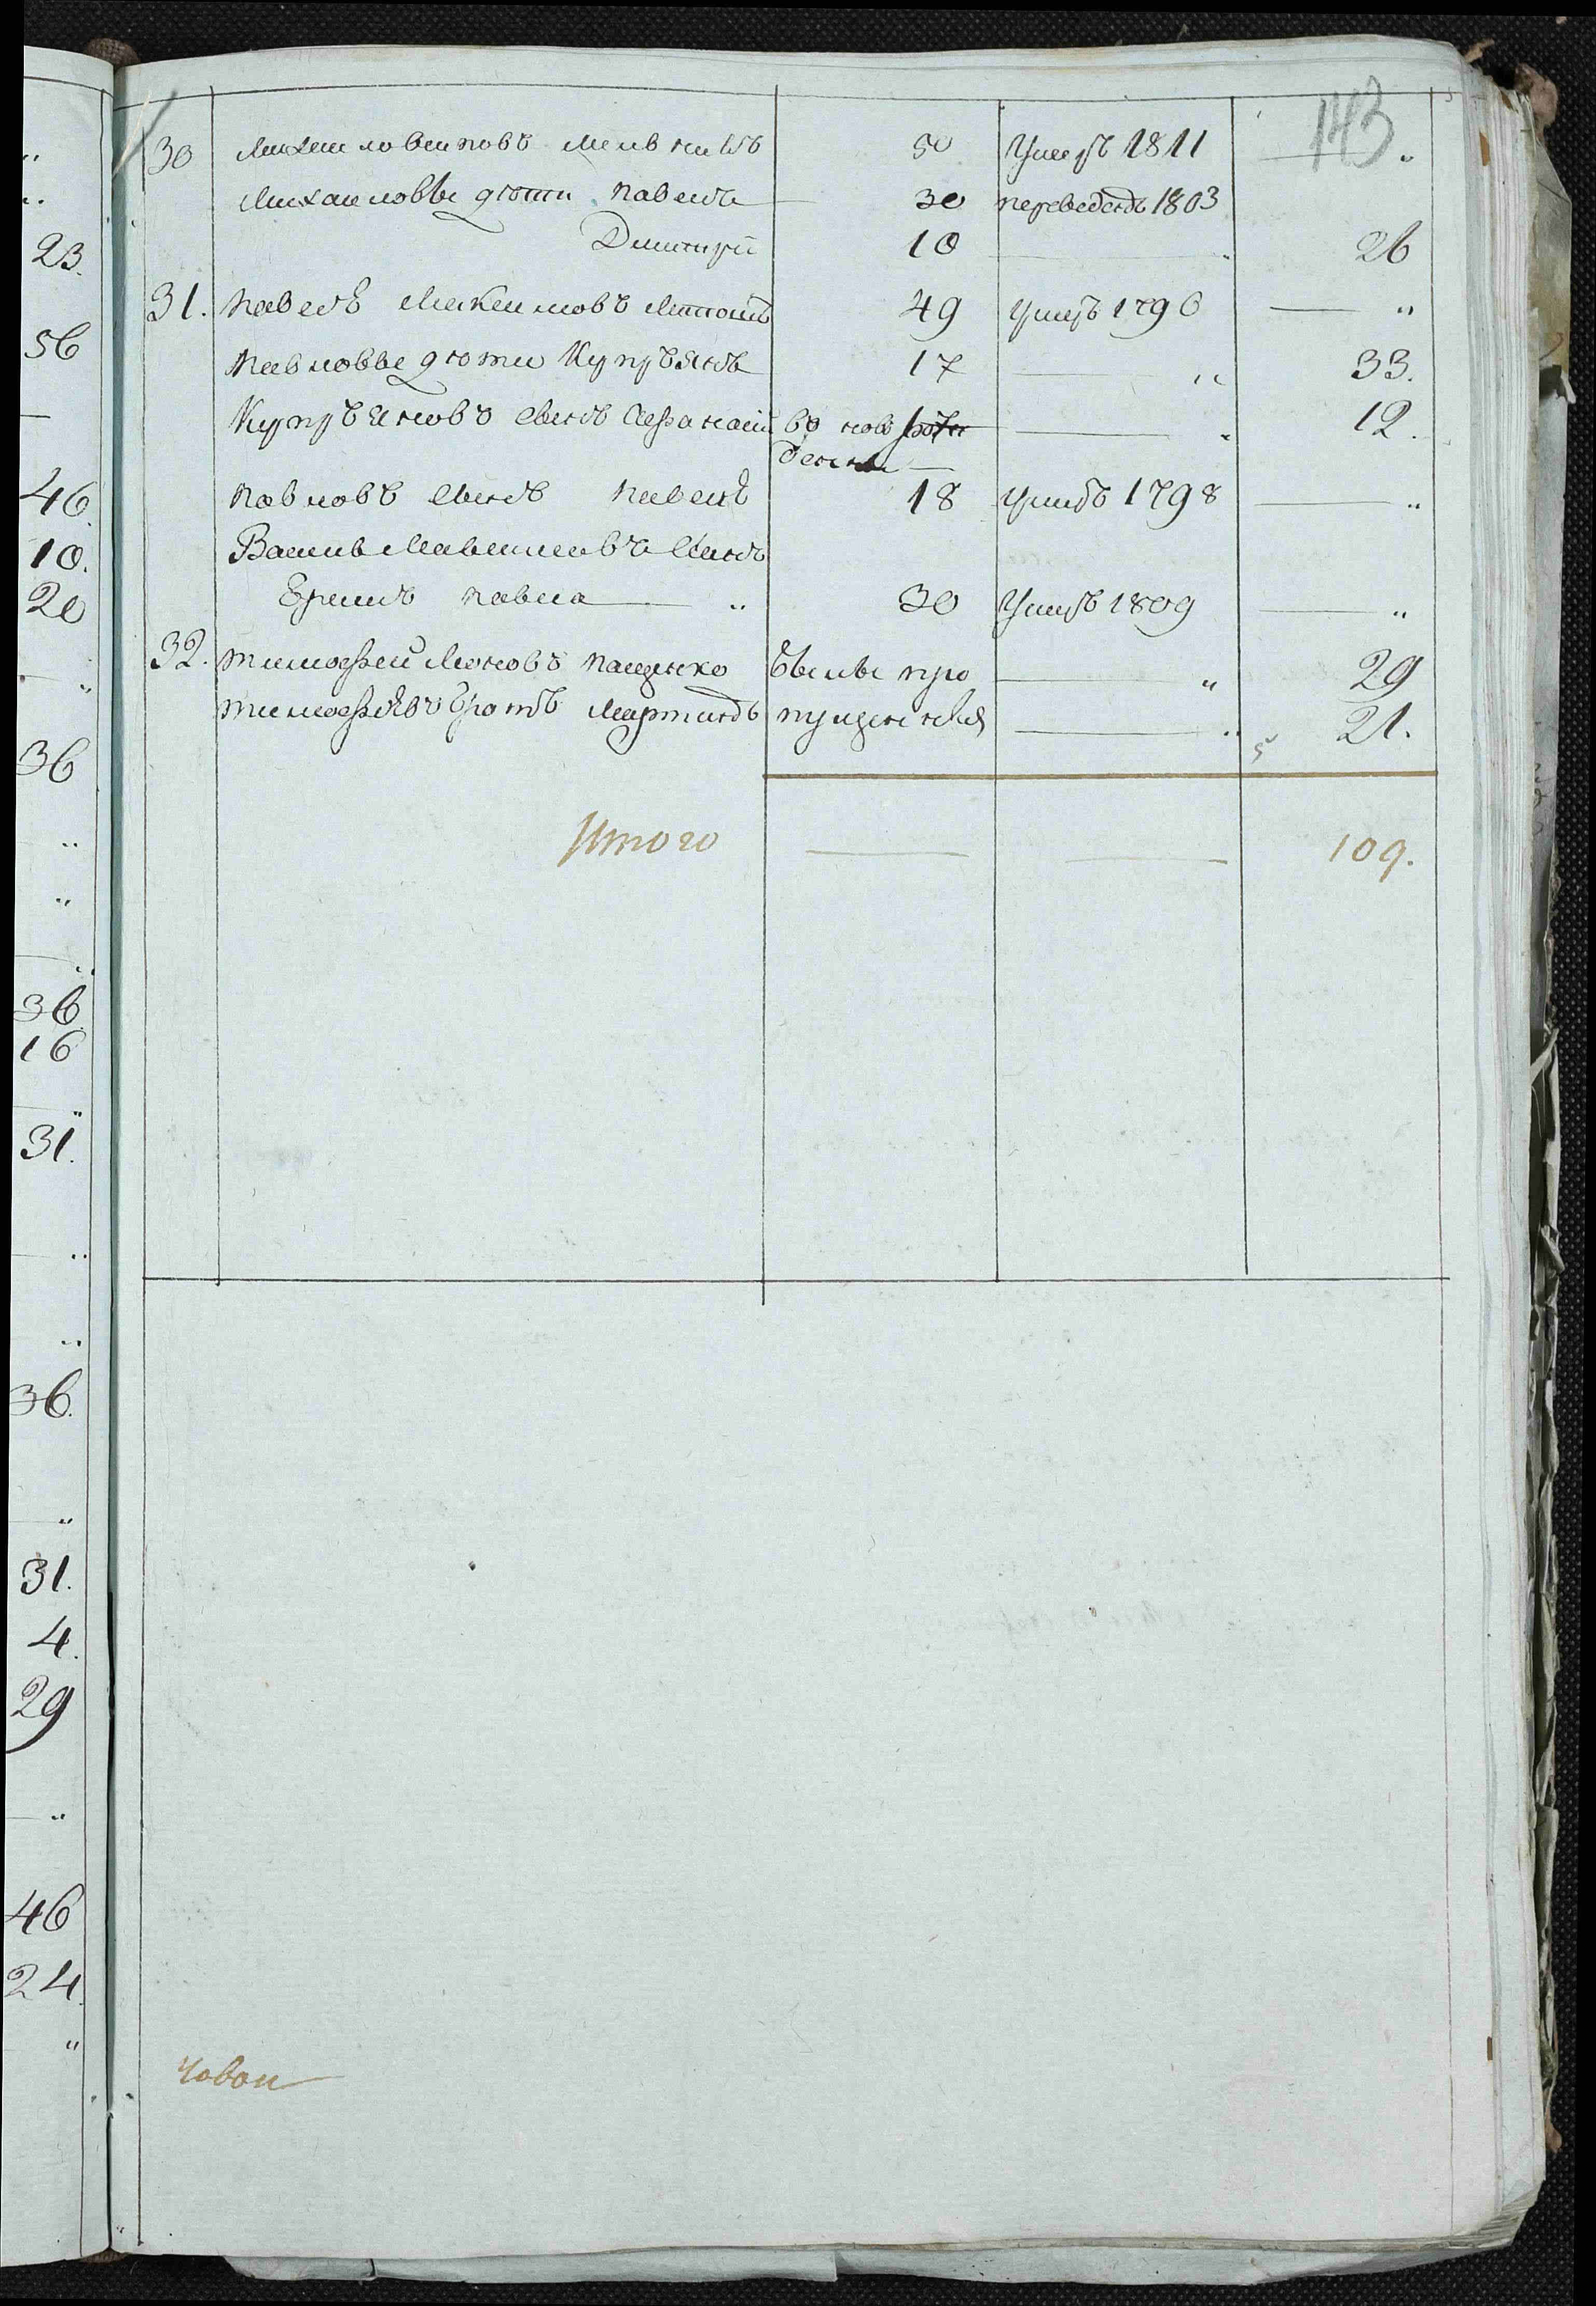 143
30 Михаило Велповъ Мельникъ 50 Умеръ 1811 "
Михаиловы дѣти Павелъ 30 переведенъ 1803
Дмитрій 10 " 26
31. Павелъ Максимовъ 49 умеръ 1796 "
Павловы дѣти Купрѣянъ 17 " 33.
Купрѣяновъ сынъ Афанасій въ ново " 12.
денны
Павловъ сынъ Павелъ 18 умеръ 1798 "
Василь сынъ
Павла " 30 Умеръ 1809 "
32. Тимофей Пащенко были про " 29
Тимофѣевъ братъ Мартинъ пущенныя " 21.
Итого 109.
23.
56
46.
10.
20
36
36
16
31.
36.
31.
4.
29
46
24